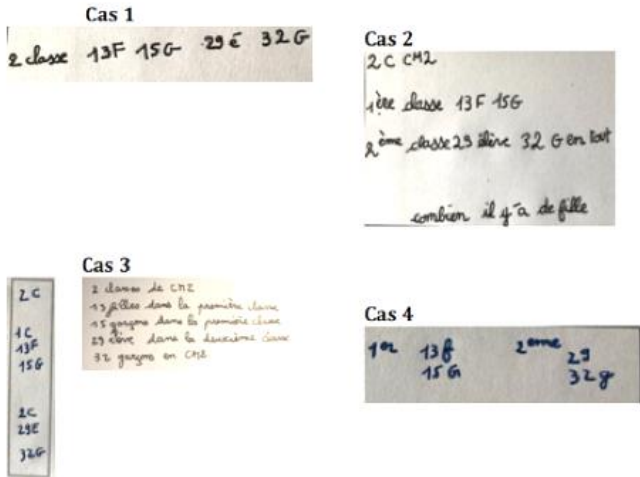 Cas 1
2 classe 13F 15G 29 é 32 G
Cas 2
2 C CM2
1ère classe 13 F 15G
2ème classe 29 élève 32 G en tout
combien il y'a de fille
Cas 3
2 C
1C
13F
15G
2C
29E
32G
2 classes de CM2
13 filles dans la première classe
15 garçons dans la première classe
29 élève dans la deuxième classe
32 garçons en CM2
Cas 4
1er 13f 2eme 29
15 G 32 g